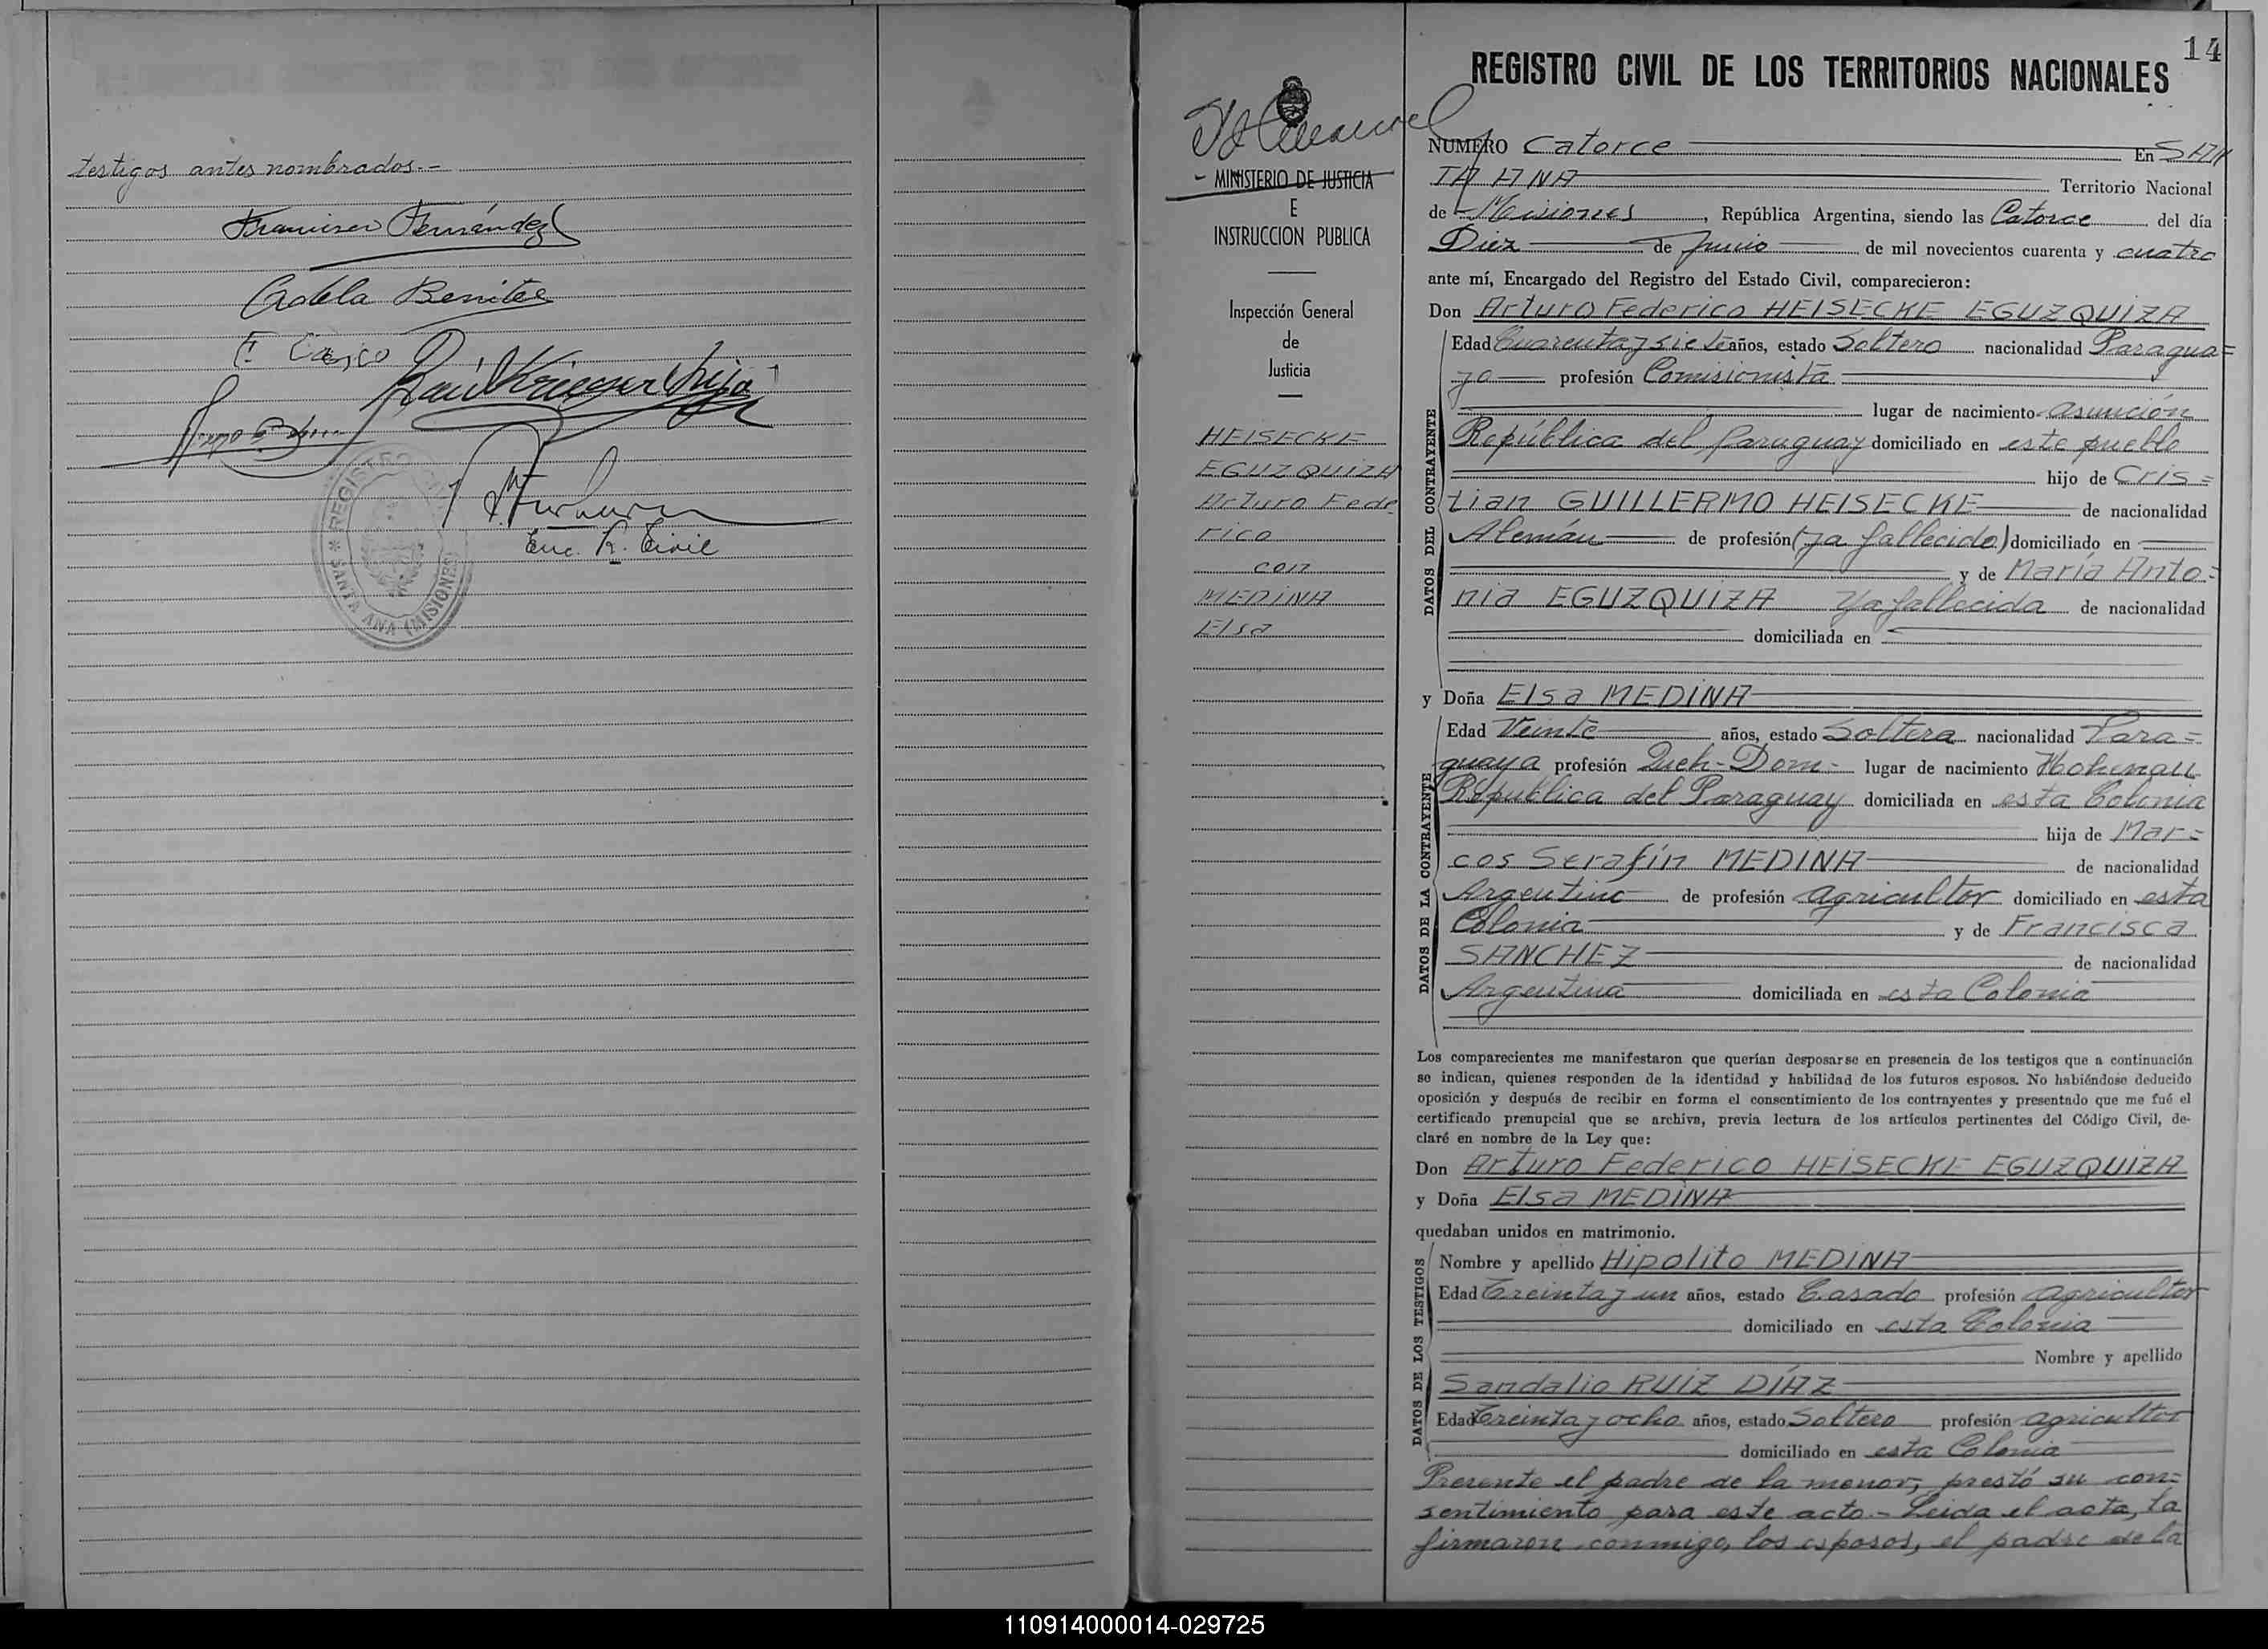 testigos antes nombrados.-
Francisco Fernández
Adela Benitez
Raúl Krieger hijo
Enc. R. Civil
* REGISTRO CIVIL * SANTA ANA (MISIONES)
MINISTERIO DE JUSTICIA
E
INSTRUCCION PUBLICA
Inspección General
de
Justicia
HEISECKE
EGUZQUIZA
Arturo Fede
rico
con
MEDINA
Elsa
14
REGISTRO CIVIL DE LOS TERRITORIOS NACIONALES
NUMERO Catorce En SAN
TA ANA Territorio Nacional
de Misiones, República Argentina, siendo las Catorce del día
Diez de Junio de mil novecientos cuarenta y cuatro
ante mí, Encargado del Registro del Estado Civil, comparecieron:
Don Arturo Federico HEISECKE EGUZQUIZA
DATOS DEL CONTRAYENTE
Edad Cuarenta y siete años, estado Soltero nacionalidad Paragua=
yo profesión Comisionista
lugar de nacimiento Asunción
República del Paraguay domiciliado en este pueblo
hijo de Cris=
tian GUILLERMO HEISECKE de nacionalidad
Alemán de profesión (ya fallecido) domiciliado en
y de María Anto=
nia EGUZQUIZA ya fallecida de nacionalidad
domiciliada en
y Doña Elsa MEDINA
DATOS DE LA CONTRAYENTE
Edad Veinte años, estado Soltera nacionalidad Para=
guaya profesión Queh-Dom- lugar de nacimiento Hohenau
República del Paraguay domiciliada en esta Colonia
hija de Mar=
cos Serafín MEDINA de nacionalidad
Argentino de profesión agricultor domiciliado en esta
Colonia y de Francisca
SANCHEZ de nacionalidad
Argentina domiciliada en esta Colonia
Los comparecientes me manifestaron que querían desposarse en presencia de los testigos que a continuación
se indican, quienes responden de la identidad y habilidad de los futuros esposos. No habiéndose deducido
oposición y después de recibir en forma el consentimiento de los contrayentes y presentado que me fué el
certificado prenupcial que se archiva, previa lectura de los artículos pertinentes del Código Civil, de-
claré en nombre de la Ley que:
Don Arturo Federico HEISECKE EGUZQUIZA
y Doña Elsa MEDINA
quedaban unidos en matrimonio.
DATOS DE LOS TESTIGOS
Nombre y apellido Hipolito MEDINA
Edad Treinta y un años, estado Casado profesión agricultor
domiciliado en esta Colonia
Nombre y apellido
Sandalio RUIZ DÍAZ
Edad Treinta y ocho años, estado Soltero profesión agricultor
domiciliado en esta Colonia
Presente el padre de la menor, prestó su con=
sentimiento para este acto.- Leida el acta, la
firmaron conmigo, los esposos, el padre de la
110914000014-029725